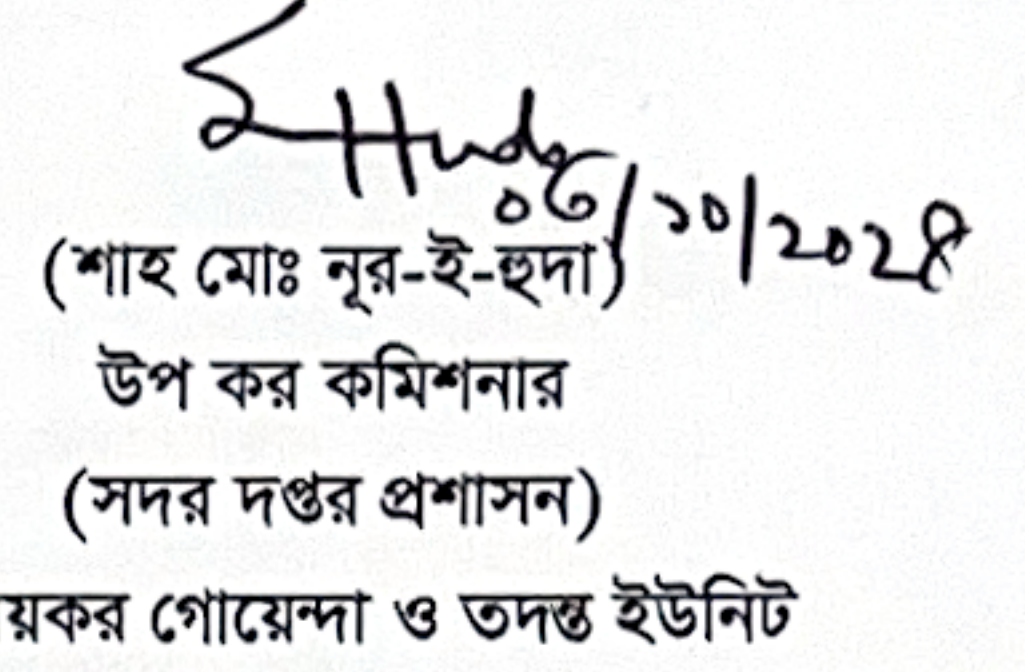 (শাহ মোঃ নূর-ই-হুদা)
উপ কর কমিশনার
(সদর দপ্তর প্রশাসন)
য়কর গোয়েন্দা ও তদন্ত ইউনিট